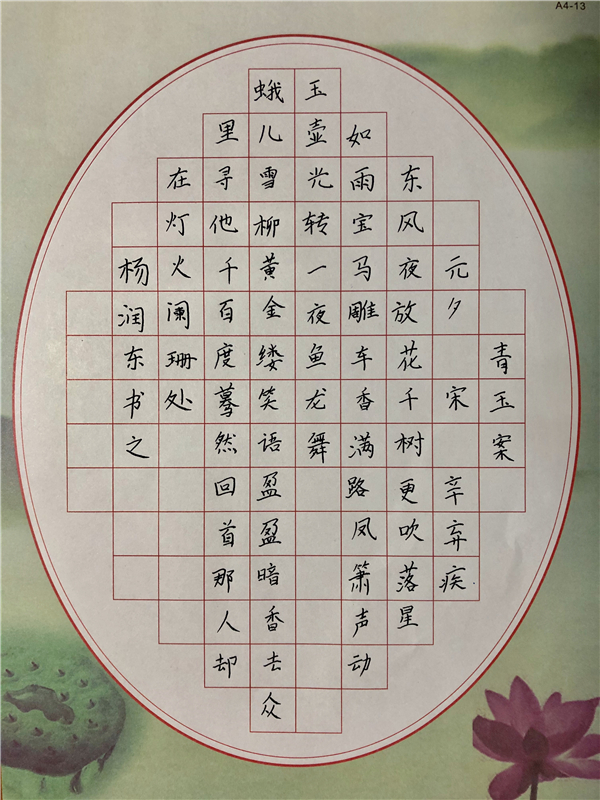 A4-13
青玉案
元夕 宋 辛弃疾
东风夜放花千树更吹落星
如雨宝马雕车香满路凤箫声动
玉壶光转一夜鱼龙舞
蛾儿雪柳黄金缕笑语盈盈暗香去众
里寻他千百度蓦然回首那人却
在灯火阑珊处
杨润东书之